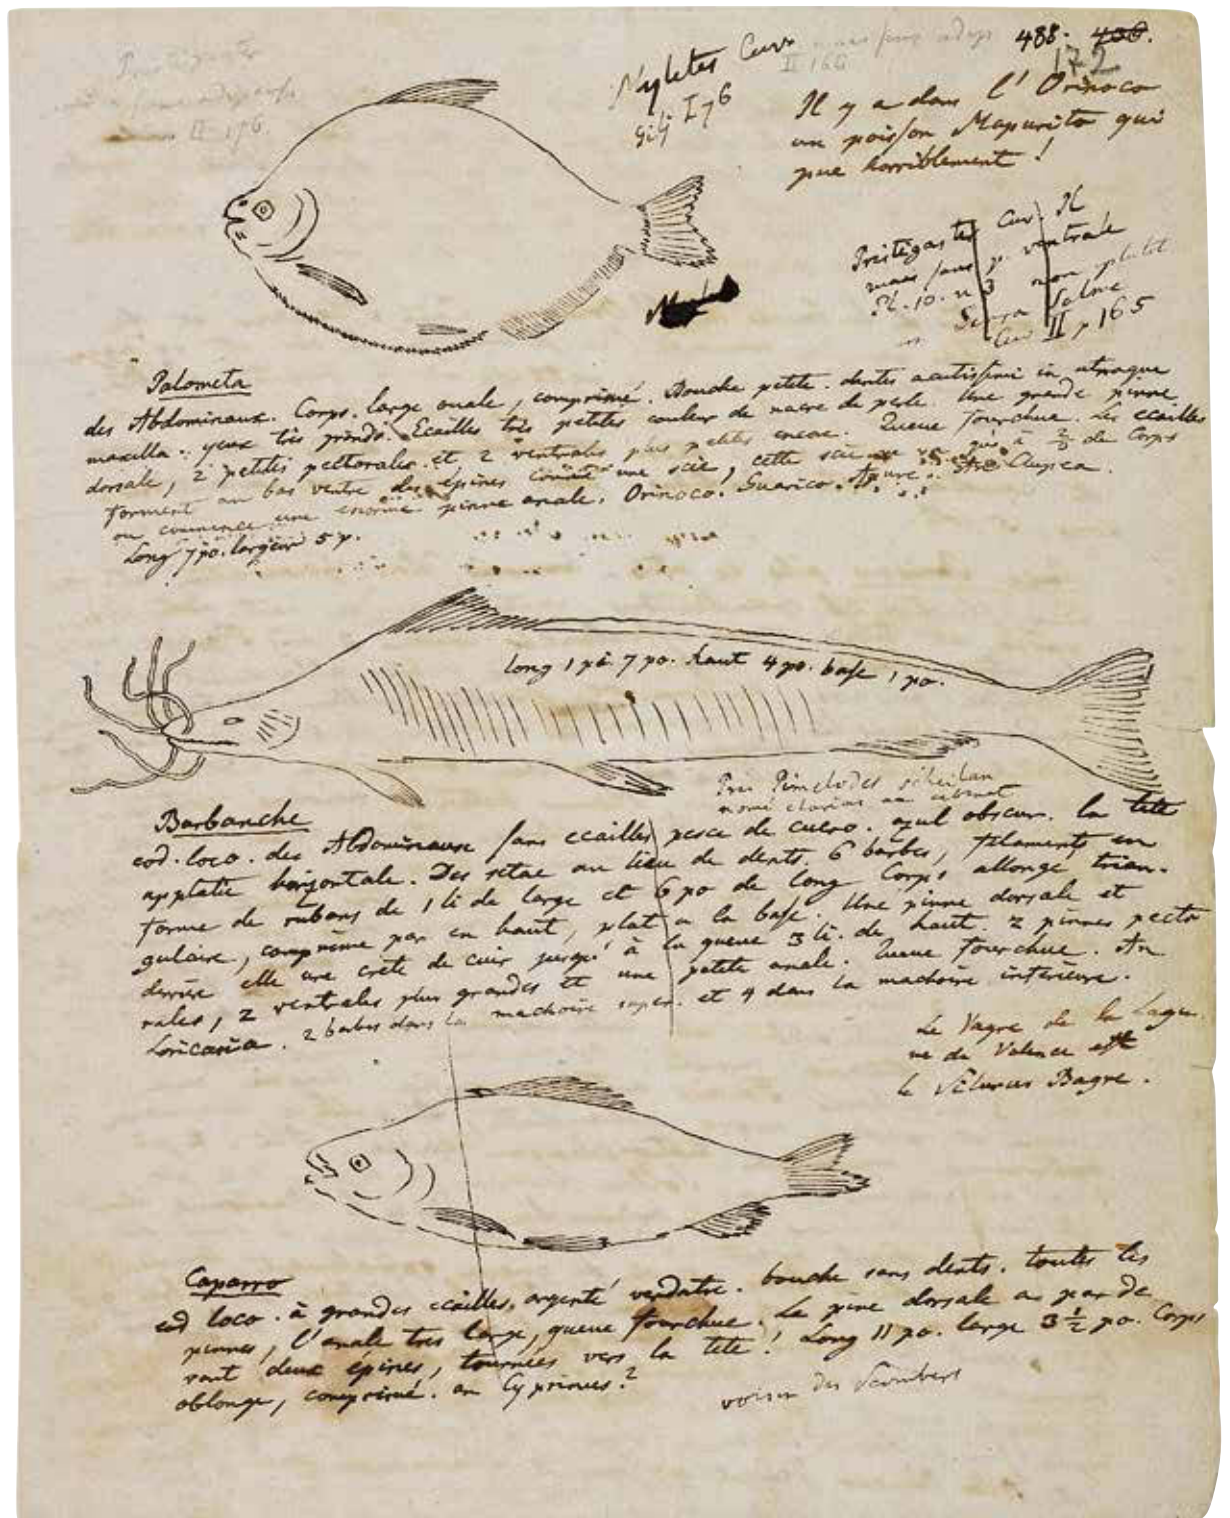 Myletes Cuv
Gilj I 76
II 166
488. 400.
172
Il y a dans l'Orinoco
un poisson Mapurito qui
pue horriblement!
II 176.
Pristigaster Cuv. Il
mais sans p. ventrale
Pl. 10. n 3 non plutot
Serra Salme
Cuv II p 165
Palometa
des Abdominaux. Corps large ovale, comprimé. Bouche petite. dentes acutissimi in utraque
maxilla. yeux très grands. Ecailles très petites couleur de nacre de perle. Une grande pinne
dorsale, 2 petites pectorales et 2 ventrales plus petites encore. Queue fourchue. Les ecailles
forment au bas ventre des épines comme une scie, cette scie va jusqu'à 2/3 du Corps
ou commence une enorme pinne anale. Orinoco. Guarico. Apure. Clupea.
Long 7 po. largeur 5 p.
long 1 pi. 7 po. haut 4 po. base 1 po.
Pimelodes
nomé clarias au cabinet
Barbanche
eod. loco. des Abdominaux sans ecailles pesce de cuero. azul obscur. la tête
applatie horizontale. Des setae au lieu de dents. 6 barbes, filaments en
forme de rubans de 1 li de large et 6 po de long Corps allongé trian-
gulaire, comprimé par en haut, plat a la base. Une pinne dorsale et
derrière elle une crète de cuir jusqu'à la queue 3 li. de haut. 2 pinnes pecto
rales, 2 ventrales plus grandes et une petite anale. Queue fourchue. An
Loricaria. 2 barbes dans la machoire super. et 4 dans la machoire inférieure.
Le Vagre de la Lagu
ne de Valence est
le Silurus Bagre.
Caparro
eod loco. à grandes ecailles, argenté verdatre. bouche sans dents. toutes les
pinnes, l'anale très large, queue fourchue. La pine dorsale a par de
vant deux épines, tournées vers la tete! Long 11 po. large 3 1/2 po. Corps
oblonge, comprimé. an Cyprinus?
voisin des Scombers